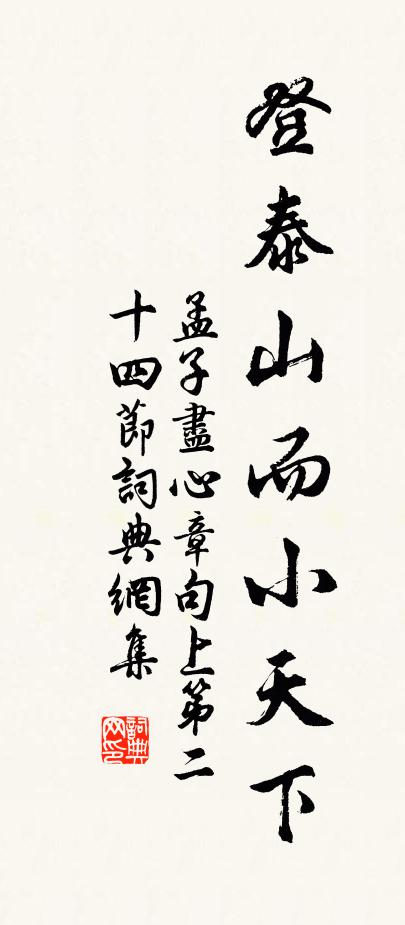 登泰山而小天下
孟子盡心章句上第二
十四節詞典網集
詞典網印